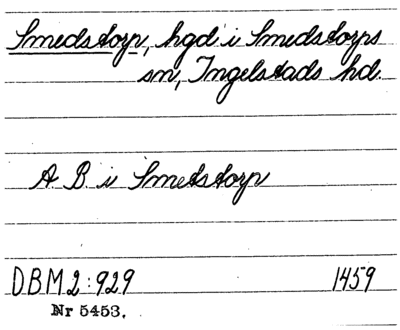 Smedstorp, hgd i Smedstorps
sn, Ingelstads hd.
A B. i Smetstorp
DBM 2:929 1459
Nr 5453.